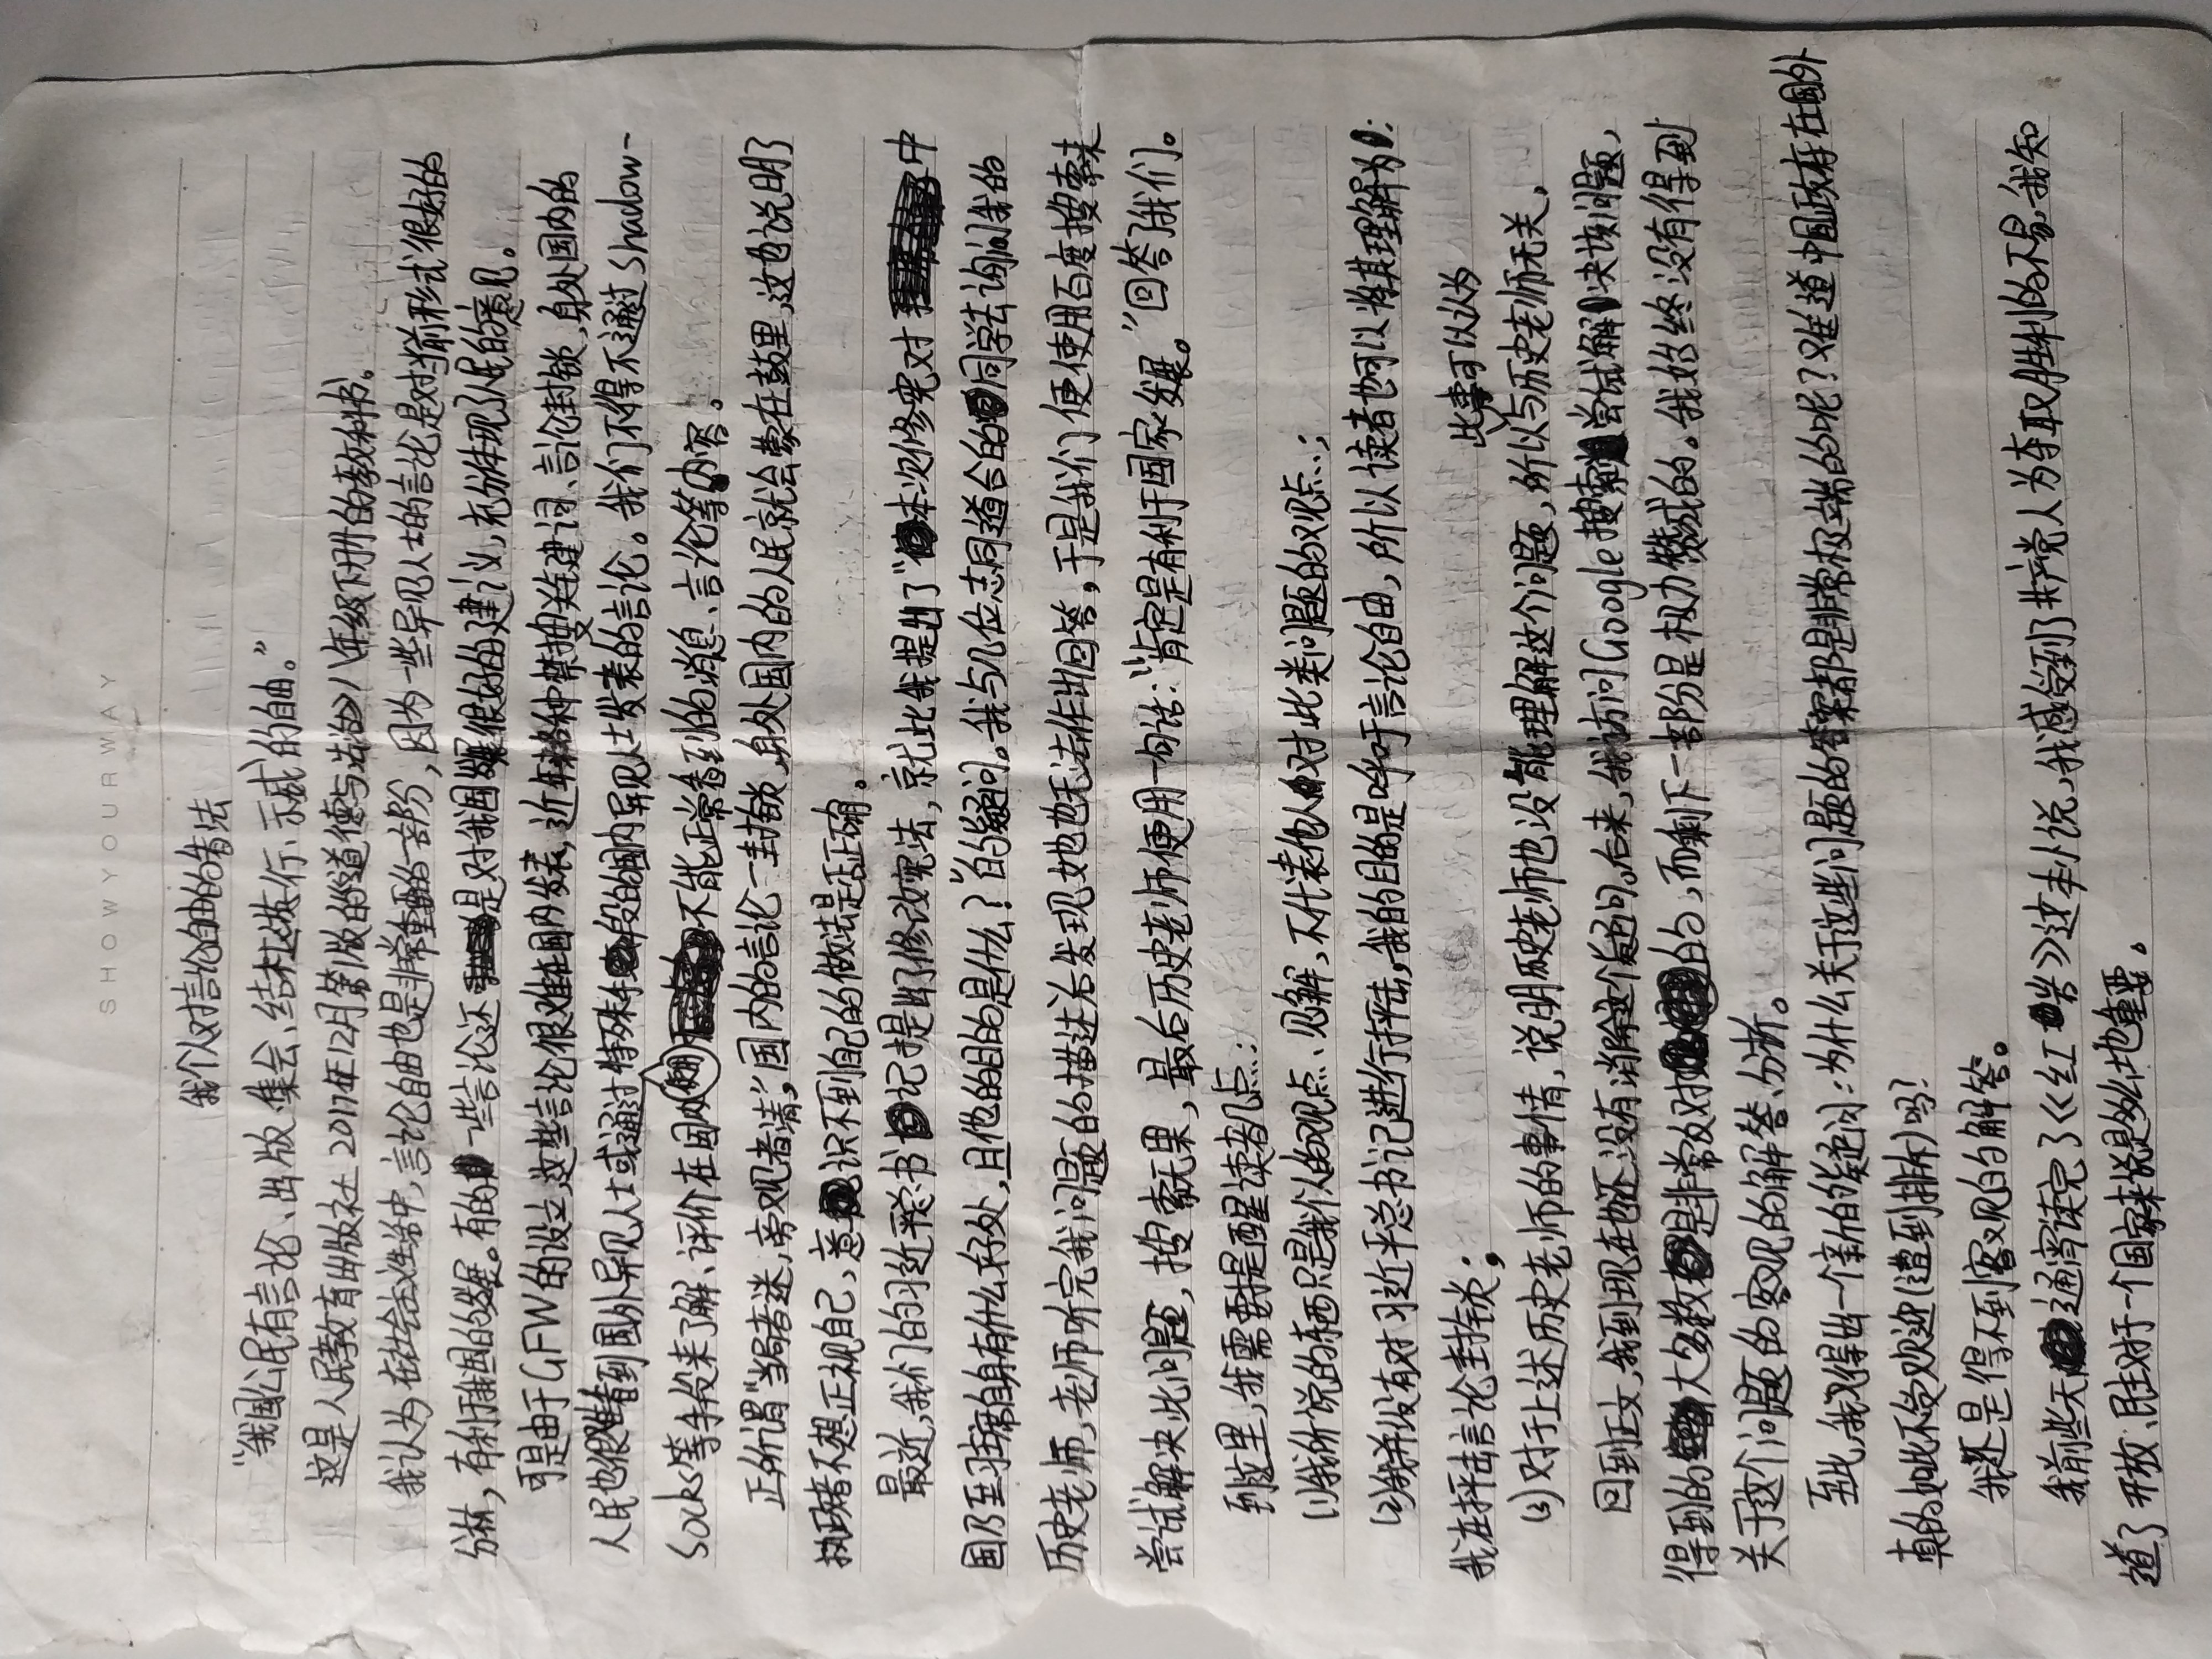 SHOWYOURWAY
我个人对言论自由的看法
“我国公民有言论、出版、集会、结社、游行、示威的自由。”
这是人民教育出版社2017年12月第1版的《道德与法治》八年级下册的教科书。
我认为在社会主义生活中,言论自由也是非常重要的一部分,因为一些异见人士的言论是对当前形式很好的
分析,有利于我国的发展。有的一些言论还是对我国发展很好的建议,充分体现了人民的意见。
可是由于GFW的设立,这些言论很难在国内发表,近年来各种禁搜关键词、言论封锁,身处国内的
人民也很难看到国外异见人士或通过特殊手段的国内异见人士发表的言论。我们不得不通过Shadow-
Socks等手段来了解、评价在国内不能正常看到的消息、言论等内容。
正所谓“当局者迷,旁观者清”,国内的言论一封锁,身处国内的人民就会蒙在鼓里,这也说明了
执政者不想正视自己,意识不到自己的做法是否正确。
最近,我们的习近平总书记提出了修改宪法,就此我提出了“本次修宪对中
国乃至习主席自身有什么好处,且他的目的是什么?”的疑问。我与几位志同道合的同学去询问我的
历史老师,老师听完我问题的描述后发现她也无法作出回答,于是我们便使用百度搜索来
尝试解决此问题,搜索无果,最后历史老师便用一句话:“肯定是有利于国家发展。”回答了我们。
到这里,我需要提醒读者几点:
(1)我所说的东西只是我个人的观点、见解,不代表他人对此类问题的观点;
(2)我并没有对习近平总书记进行抨击,我的目的是呼吁言论自由,所以读者也可以将其理解为:
我在抨击言论封锁;
(3)对于上述历史老师的事情,说明历史老师也没能理解这个问题,所以此事可以认为与历史老师无关。
回到正文,我到现在也还没有消除这个疑问。后来,我访问Google搜索尝试解决该问题,
得到的大多数是非常反对的,而剩下一部分是极力赞成的。我始终没有得到
关于这个问题的客观的解答、分析。
至此,我又得出一个新的疑问:为什么关于这些问题的答案都是非常极端的呢?难道中国政府在国外
真的如此不受欢迎(遭到排斥)吗?
我还是得不到客观的解答。
我前些天通宵读完了《红岩》这本小说,我感受到了共产党人为夺取胜利的不易,我知
道了开放、民主对于一个国家来说是多么地重要。